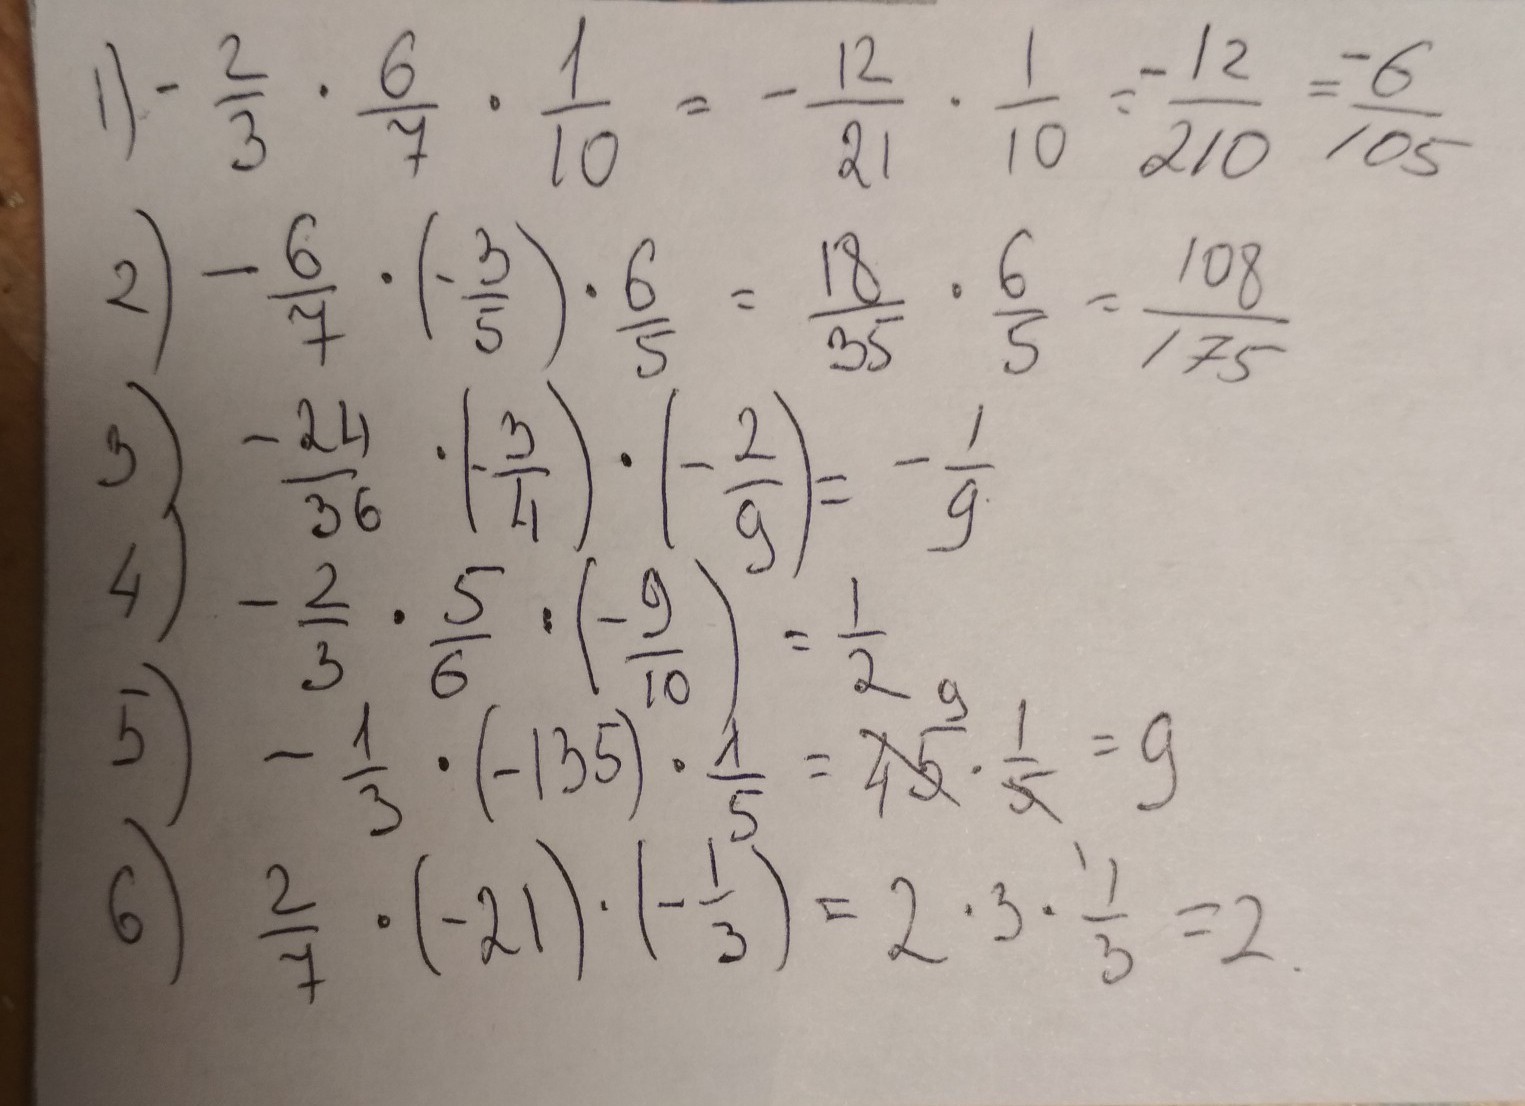 1) - 2/3 · 6/7 · 1/10 = - 12/21 · 1/10 = -12/210 = -6/105
2) - 6/7 · (-3/5) · 6/5 = 18/35 · 6/5 = 108/175
3) -24/36 · (-3/4) · (-2/9) = - 1/9
4) - 2/3 · 5/6 · (-9/10) = 1/2
5) - 1/3 · (-135) · 1/5 = 45 9 · 1/5 = 9
6) 2/7 · (-21) · (-1/3) = 2 · 3 · 1/3 = 2.